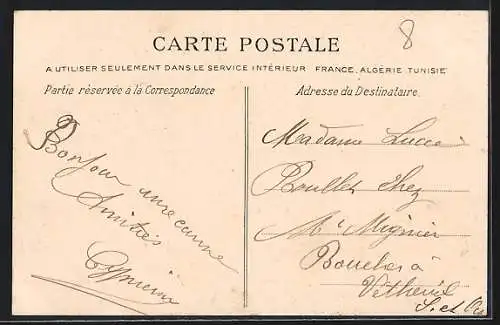 8
CARTE POSTALE
A UTILISER SEULEMENT DANS LE SERVICE INTÉRIEUR FRANCE, ALGÉRIE TUNISIE
Partie réservée à la Correspondance
Adresse du Destinataire.
Bonjour
Amitiés
Madame
Boullet chez
Mr Mignier
Boucher à
Vétheuil
S. et Oise